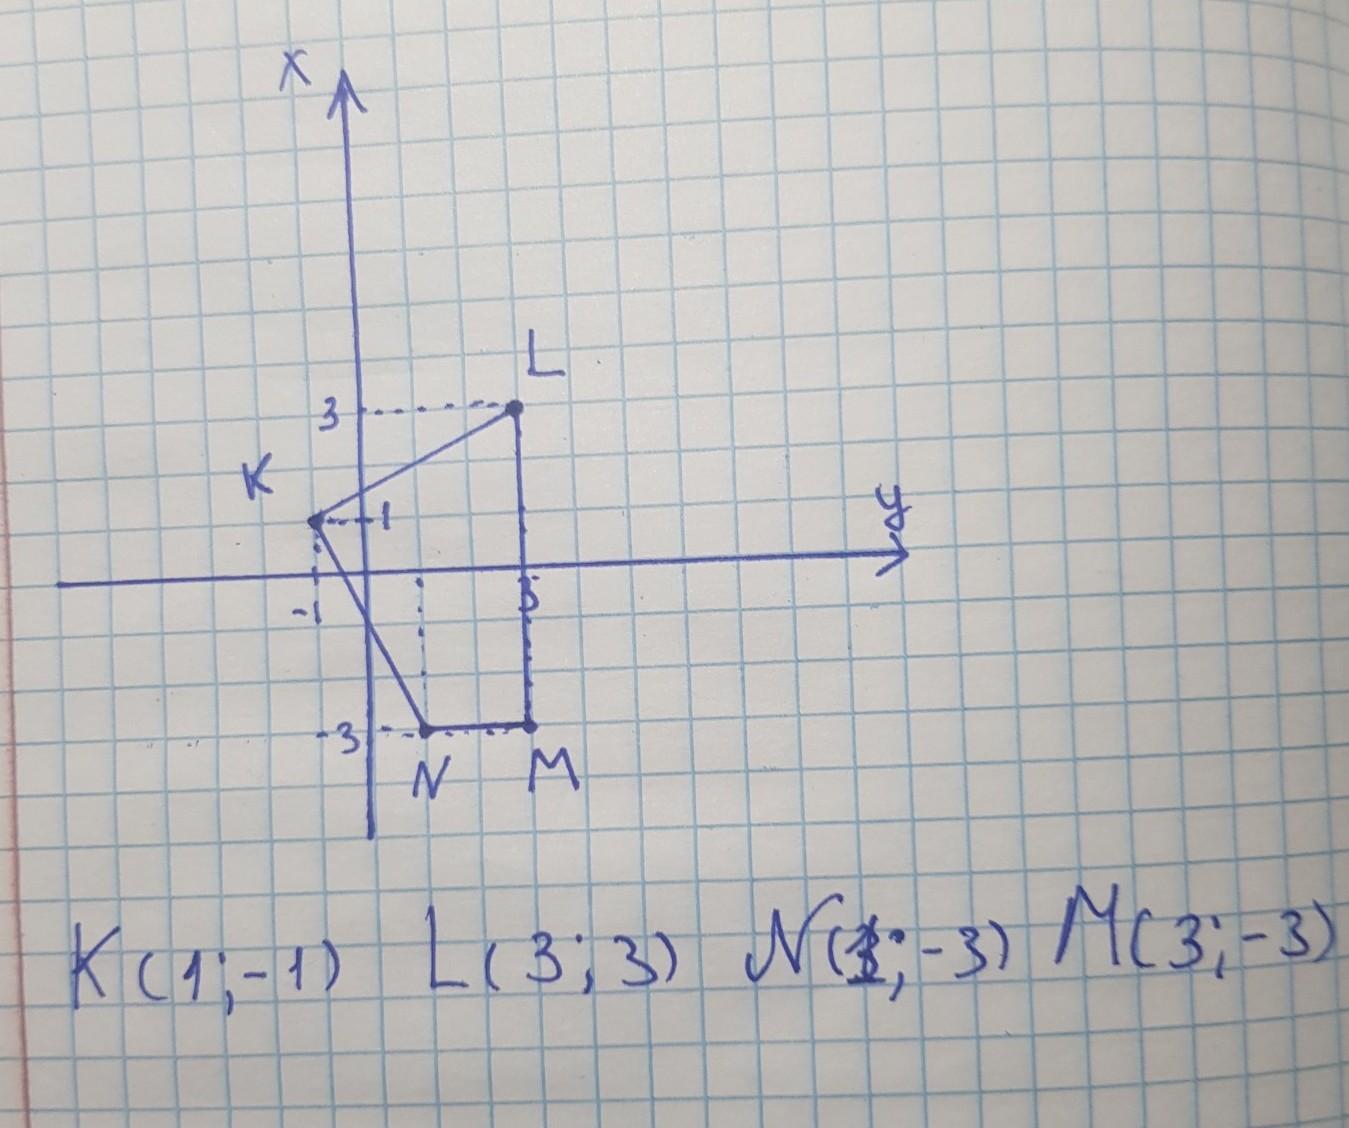 x
L
3
K
1
y
-1
3
-3
N M
K(1;-1) L(3;3) N(1;-3) M(3;-3)